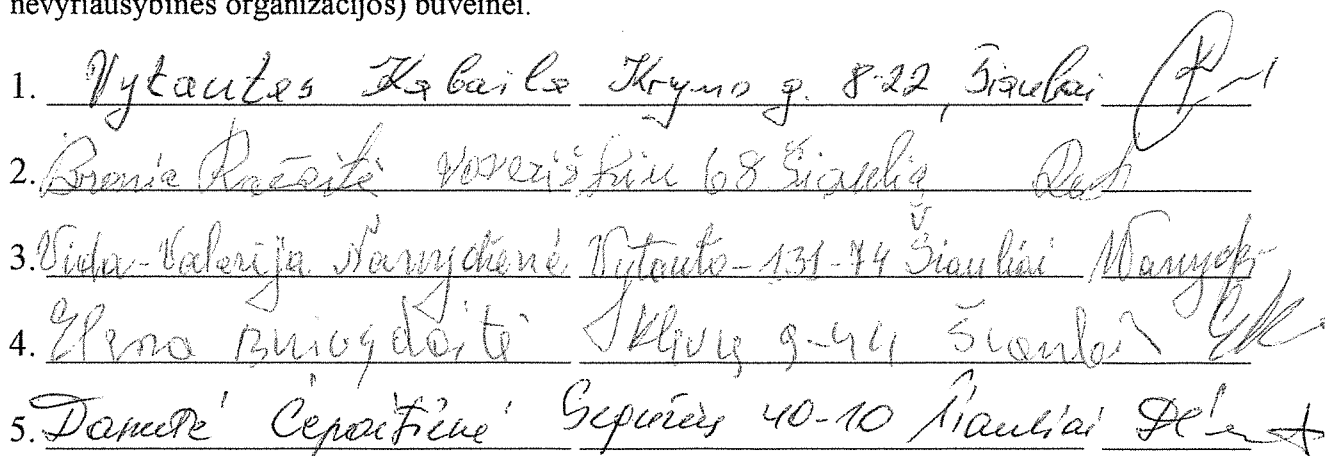 nevyriausybinės organizacijos) buveinei.
1. Vytautas Kabaila Kryno g. 8-22, Šiauliai
2. Bronė Račaitė 68 Šiaulių
3. Vida-Valerija Narvydienė Vytauto-131-74 Šiauliai
4. Elena Klevų 9-44 Šiauliai
5. Danutė Čepaitienė 40-10 Šiauliai